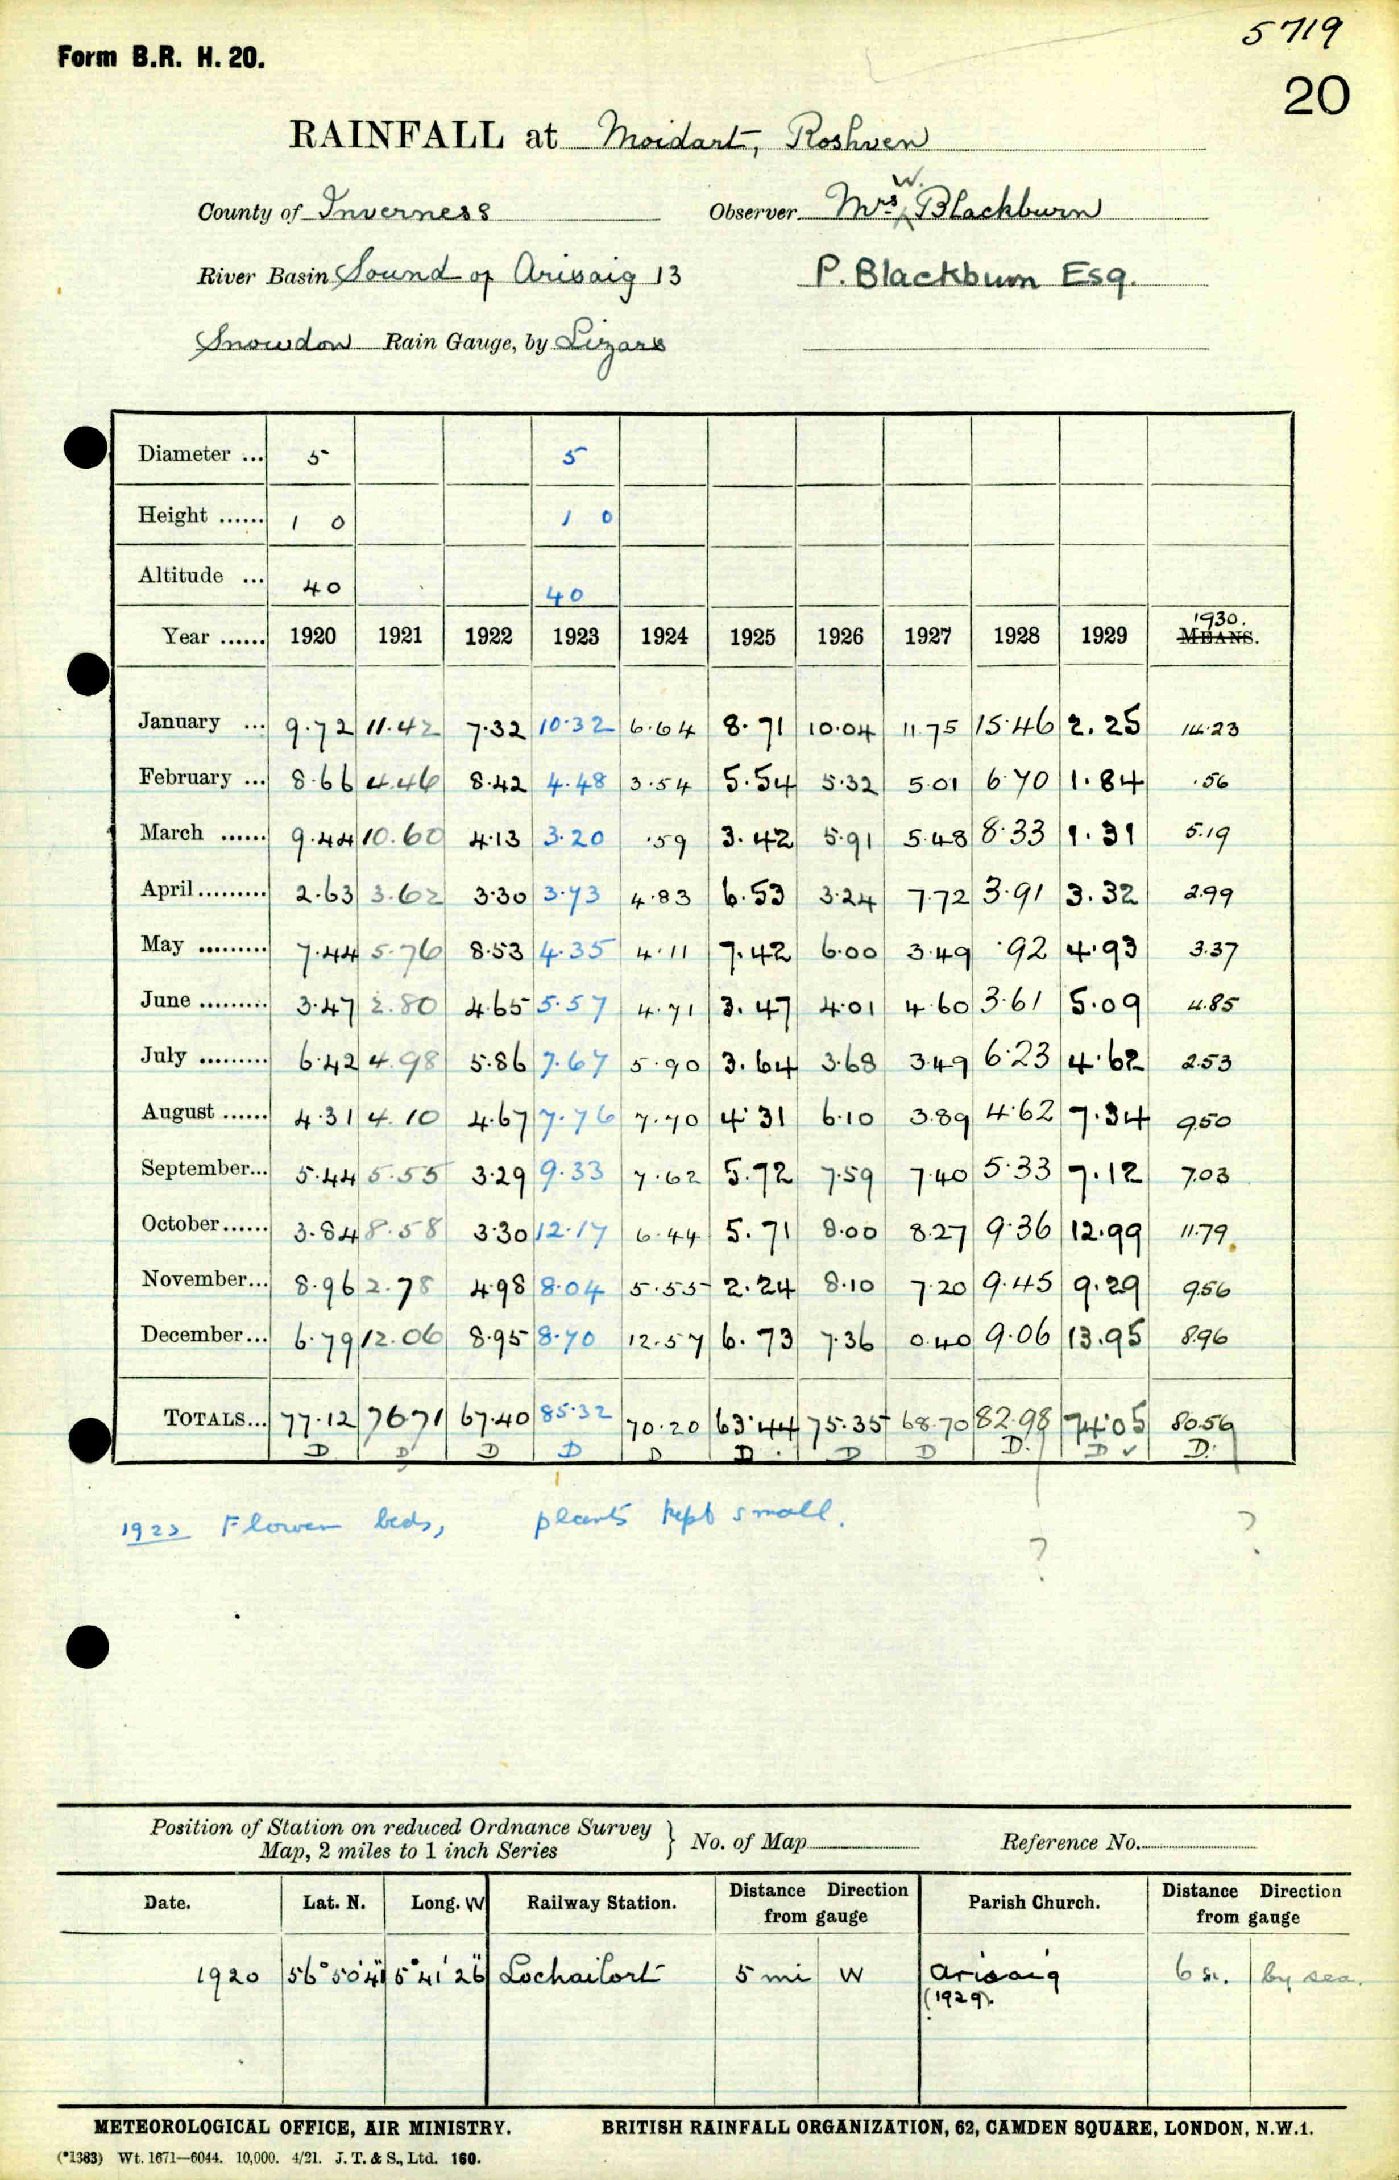 5719
Form B.R. H. 20.
20
RAINFALL at Moidart, Roshven
County of Inverness Observer Mrs W. Blackburn
River Basin Sound of Arisaig 13 P. Blackburn Esq.
Snowdon Rain Gauge, by Lizars
Diameter ... 5 5
Height ...... 1 0 1 0
Altitude ... 40 40
Year ...... 1920 1921 1922 1923 1924 1925 1926 1927 1928 1929 1930. MEANS.
January ... 9.72 11.42 7.32 10.32 6.64 8.71 10.04 11.75 15.46 2.25 14.23
February ... 8.66 4.46 8.42 4.48 3.54 5.54 5.32 5.01 6.70 1.84 .56
March ...... 9.44 10.60 4.13 3.20 .59 3.42 5.91 5.48 8.33 1.31 5.19
April ......... 2.63 3.62 3.30 3.73 4.83 6.53 3.24 7.72 3.91 3.32 2.99
May ......... 7.44 5.76 8.53 4.35 4.11 7.42 6.00 3.49 .92 4.93 3.37
June ......... 3.47 2.80 4.65 5.57 4.71 3.47 4.01 4.60 3.61 5.09 4.85
July ......... 6.42 4.98 5.86 7.67 5.90 3.64 3.68 3.49 6.23 4.62 2.53
August ...... 4.31 4.10 4.67 7.76 7.70 4.31 6.10 3.89 4.62 7.34 9.50
September... 5.44 5.55 3.29 9.33 7.62 5.72 7.59 7.40 5.33 7.12 7.03
October...... 3.84 8.58 3.30 12.17 6.44 5.71 8.00 8.27 9.36 12.99 11.79
November... 8.96 2.78 4.98 8.04 5.55 2.24 8.10 7.20 9.45 9.29 9.56
December... 6.79 12.06 8.95 8.70 12.57 6.73 7.36 0.40 9.06 13.95 8.96
TOTALS... 77.12 76.71 67.40 85.32 70.20 63.44 75.35 68.70 82.98 74.05 80.56
D D D D D D. D D D. D ✓ D.
1923 Flower beds, plants kept small.
? ?
Position of Station on reduced Ordnance Survey
Map, 2 miles to 1 inch Series } No. of Map Reference No.
Date. Lat. N. Long. W Railway Station. Distance Direction from gauge Parish Church. Distance Direction from gauge
1920 56° 50' 4" 5° 41' 26" Lochailort 5 mi W Arisaig 6 by sea.
(1929).
METEOROLOGICAL OFFICE, AIR MINISTRY. BRITISH RAINFALL ORGANIZATION, 62, CAMDEN SQUARE, LONDON, N.W.1.
(*1383) Wt. 1671—6044. 10,000. 4/21. J. T. & S., Ltd. 160.